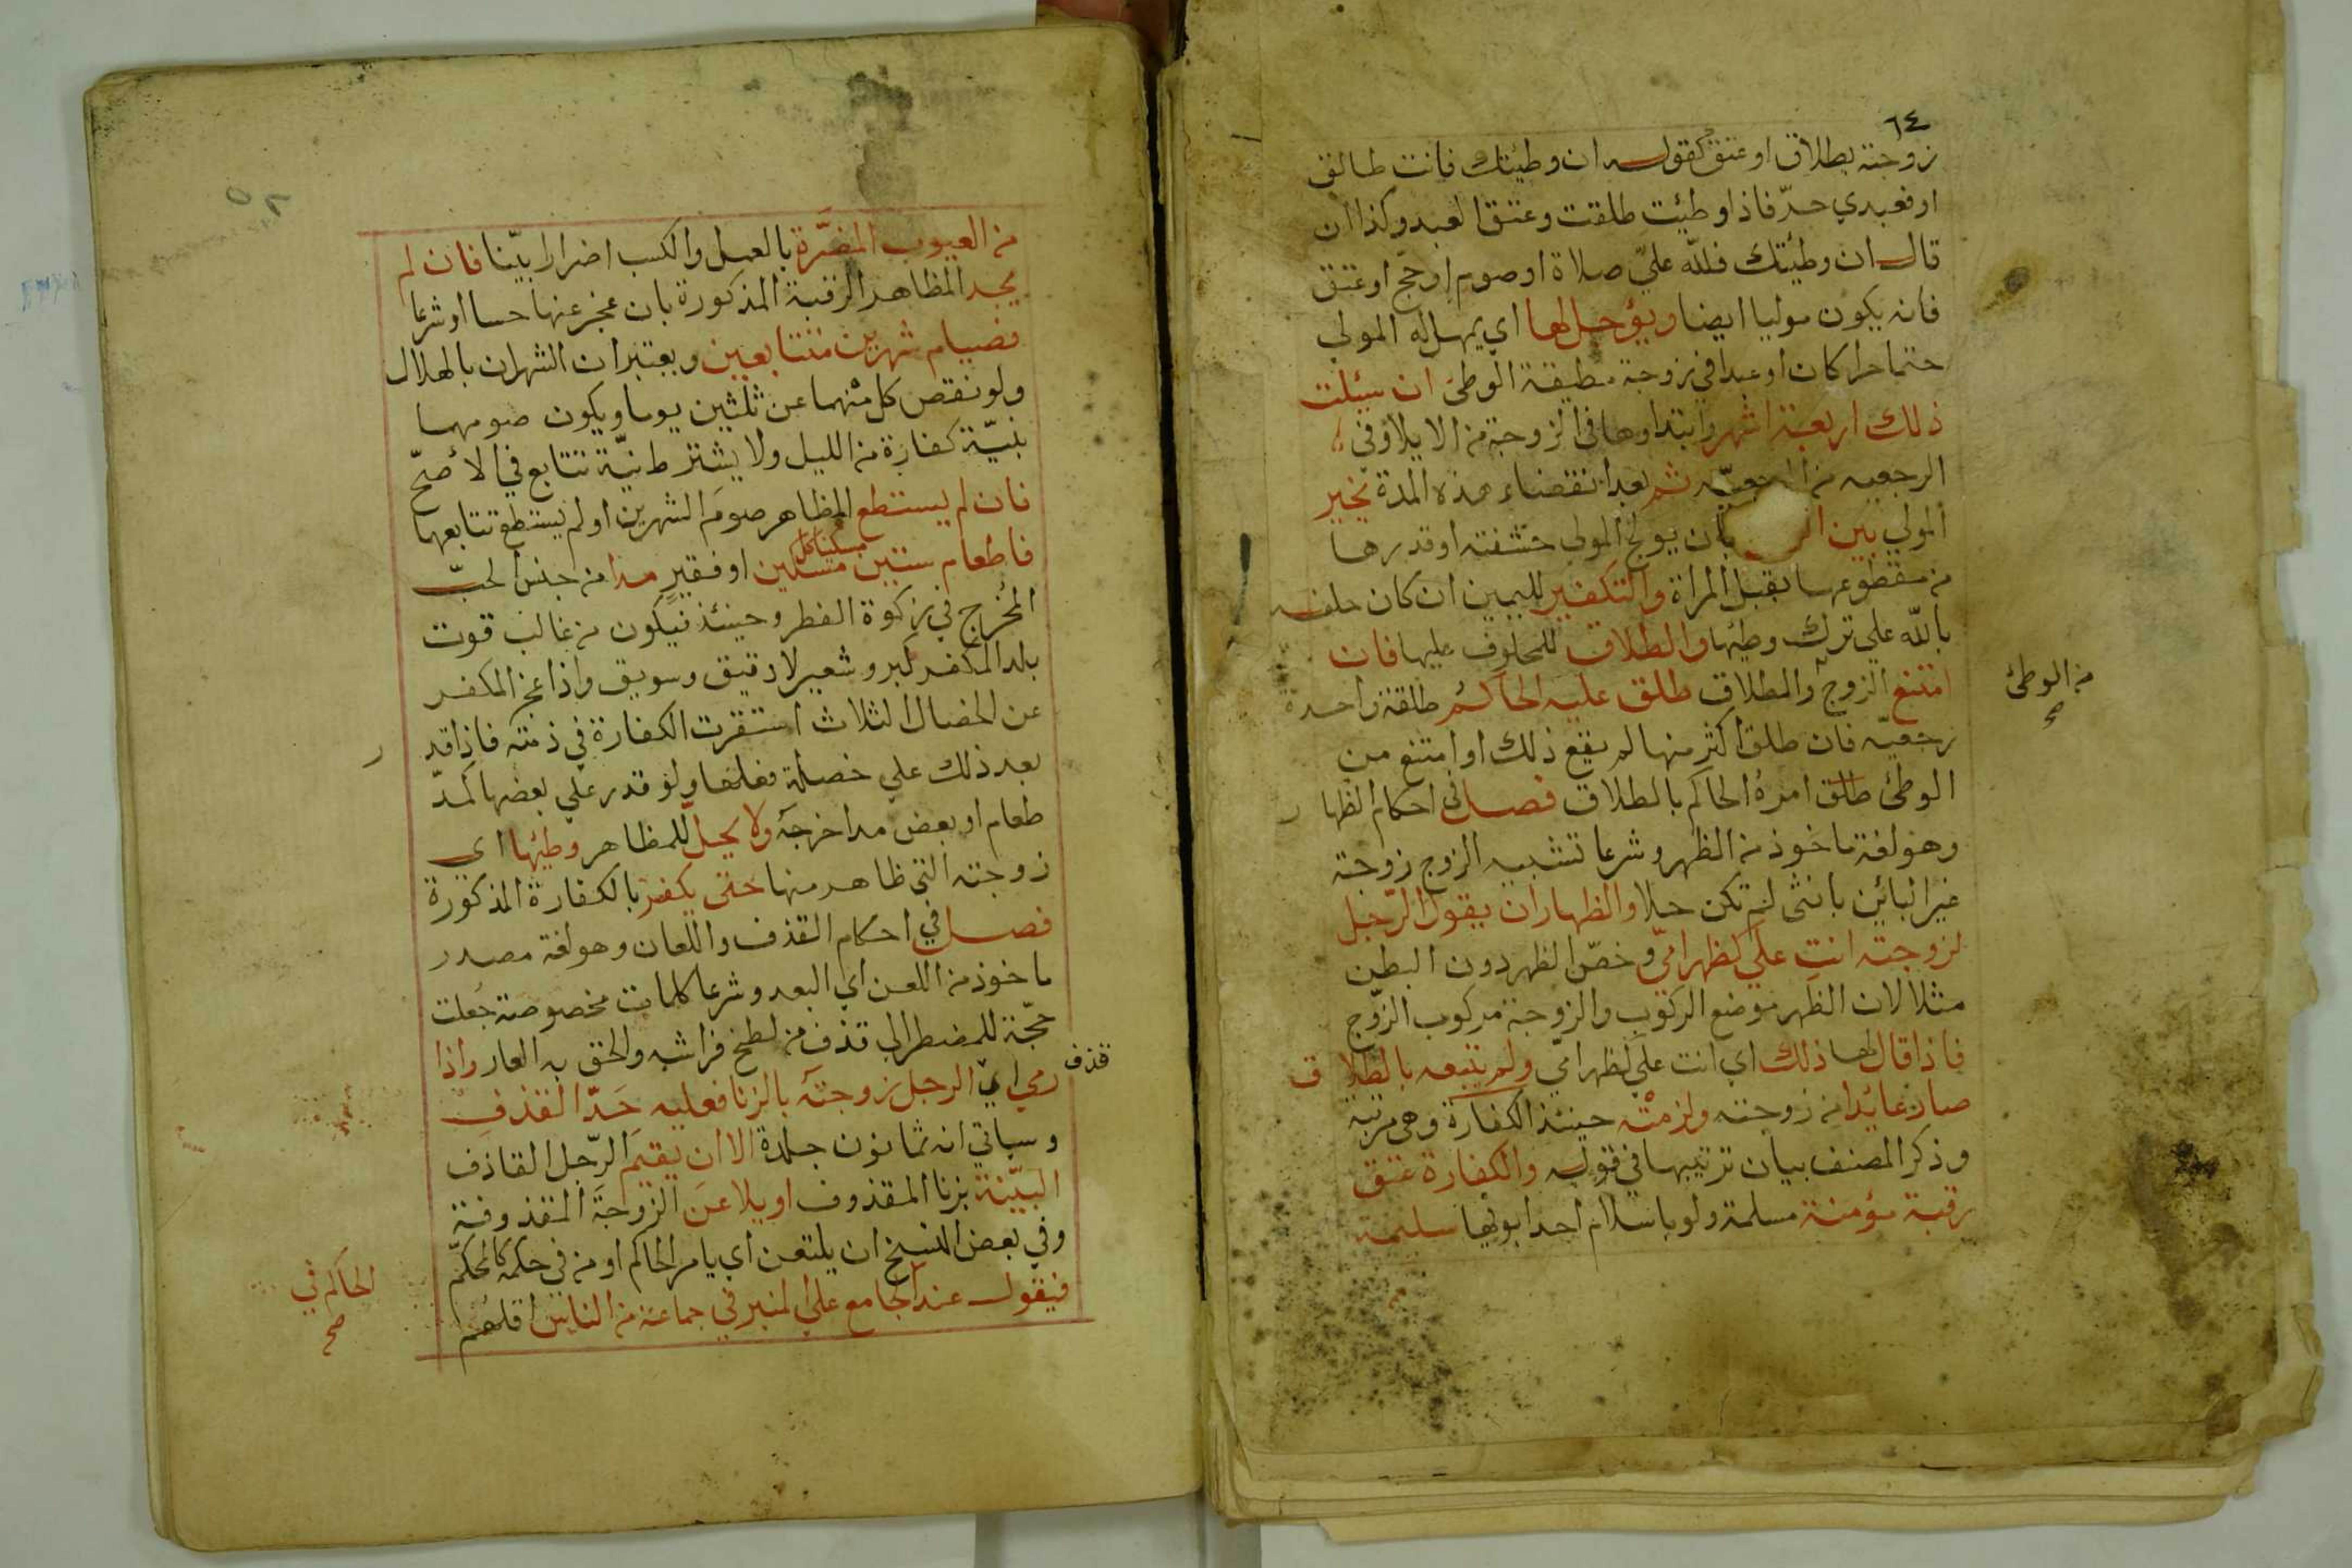 ٦٤
زوجته بطلاق او عتق كقوله ان وطيتك فانت طالق
او فعبدي حرّ فاذا وطئت طلقت وعتق العبد وكذا ان
قال ان وطئتك فللّه عليّ صلاة او صوم او حجّ او عتق
فانه يكون موليا ايضا ويؤجل لها اي يمهل له المولي
حتما حرا كان او عبدا في زوجة مطيقة الوطئ ان سئلت
ذلك اربعة اشهر وابتداوها في الزوجة من الايلا وفي
الرجعيه من الرجعيّه ثم بعد انقضاء هذه المدة يخير
المولي بين بان يولج المولي حشفته او قدرها
من مقطوعها بقبل المراة والتكفير لليمين ان كان حلفه
بالله علي ترك وطيها والطلاق للمحلوف عليها فان
امتنع الزوج والطلاق طلق عليه الحاكم طلقة واحدة
من الوطئ
صح
رجعيّه فان طلق اكثر منها لم يقع ذلك او امتنع من
الوطئ طلق امره الحاكم بالطلاق فصل في احكام الظهار
وهو لغة ماخوذ من الظهر وشرعا تشبيه الزوج زوجته
غير البائن بانثى لم تكن حلا والظهار ان يقول الرّجل
لزوجته انت عليّ كظهر امّي وخصّ الظهر دون البطن
مثلا لان الظهر موضع الركوب والزوجة مركوب الزّوج
فاذا قال لها ذلك اي انت عليّ كظهر امّي ولم يتبعه بالطلاق
صار عائدا من زوجته ولزمته حينئذ الكفارة وهي مرتبة
وذكر المصنف بيان ترتيبها في قوله والكفارة عتق
رقبة مؤمنة مسلمة ولو باسلام احد ابويها سليمة
٥٢
من العيوب المضرّة بالعمل والكسب اضرارا بيّنا فان لم
يجد المظاهر الرقبة المذكورة بان عجز عنها حسا او شرعا
فصيام شهرين متتابعين ويعتبر ان الشهران بالهلال
ولو نقص كل منهما عن ثلثين يوما ويكون صومهما
بنيّة كفارة من الليل ولا يشترط نيّة تتابع في الأصحّ
فان لم يستطع المظاهر صوم الشهرين او لم يستطع تتابعهما
فاطعام ستين مسكين او فقير مدا من جنس الحبّ
مسكينا كل
المخرج في زكوة الفطر وحينئذ فيكون من غالب قوت
بلد المكفر كبر وشعير لا دقيق وسويق واذا عجز المكفر
عن الخصال الثلاث استقرت الكفارة في ذمته فاذا قدر
بعد ذلك علي خصلة فعلها ولو قدر علي بعضها كمدّ
طعام او بعض مد اخرجه ولا يحلّ للمظاهر وطيها اي
زوجته التي ظاهر منها حتى يكفر بالكفارة المذكورة
فصل في احكام القذف واللعان وهو لغة مصدر
ماخوذ من اللعن اي البعد وشرعا كلمات مخصوصة جعلت
حجّة للمضطر الي قذف من لطخ فراشه والحق به العار واذا
قذف
رمي اي الرجل زوجته بالزنا فعليه حدّ القذف
وسياتي انه ثمانون جلدة الا ان يقيم الرّجل القاذف
البيّنة بزنا المقذوف او يلاعن الزوجة المقذوفة
وفي بعض النسخ ان يلتعن اي يامر الحاكم او من في حكمه كالمحكّم
الحاكم في
صح
فيقول عند الجامع علي المنبر في جماعة من الناس اقلهم